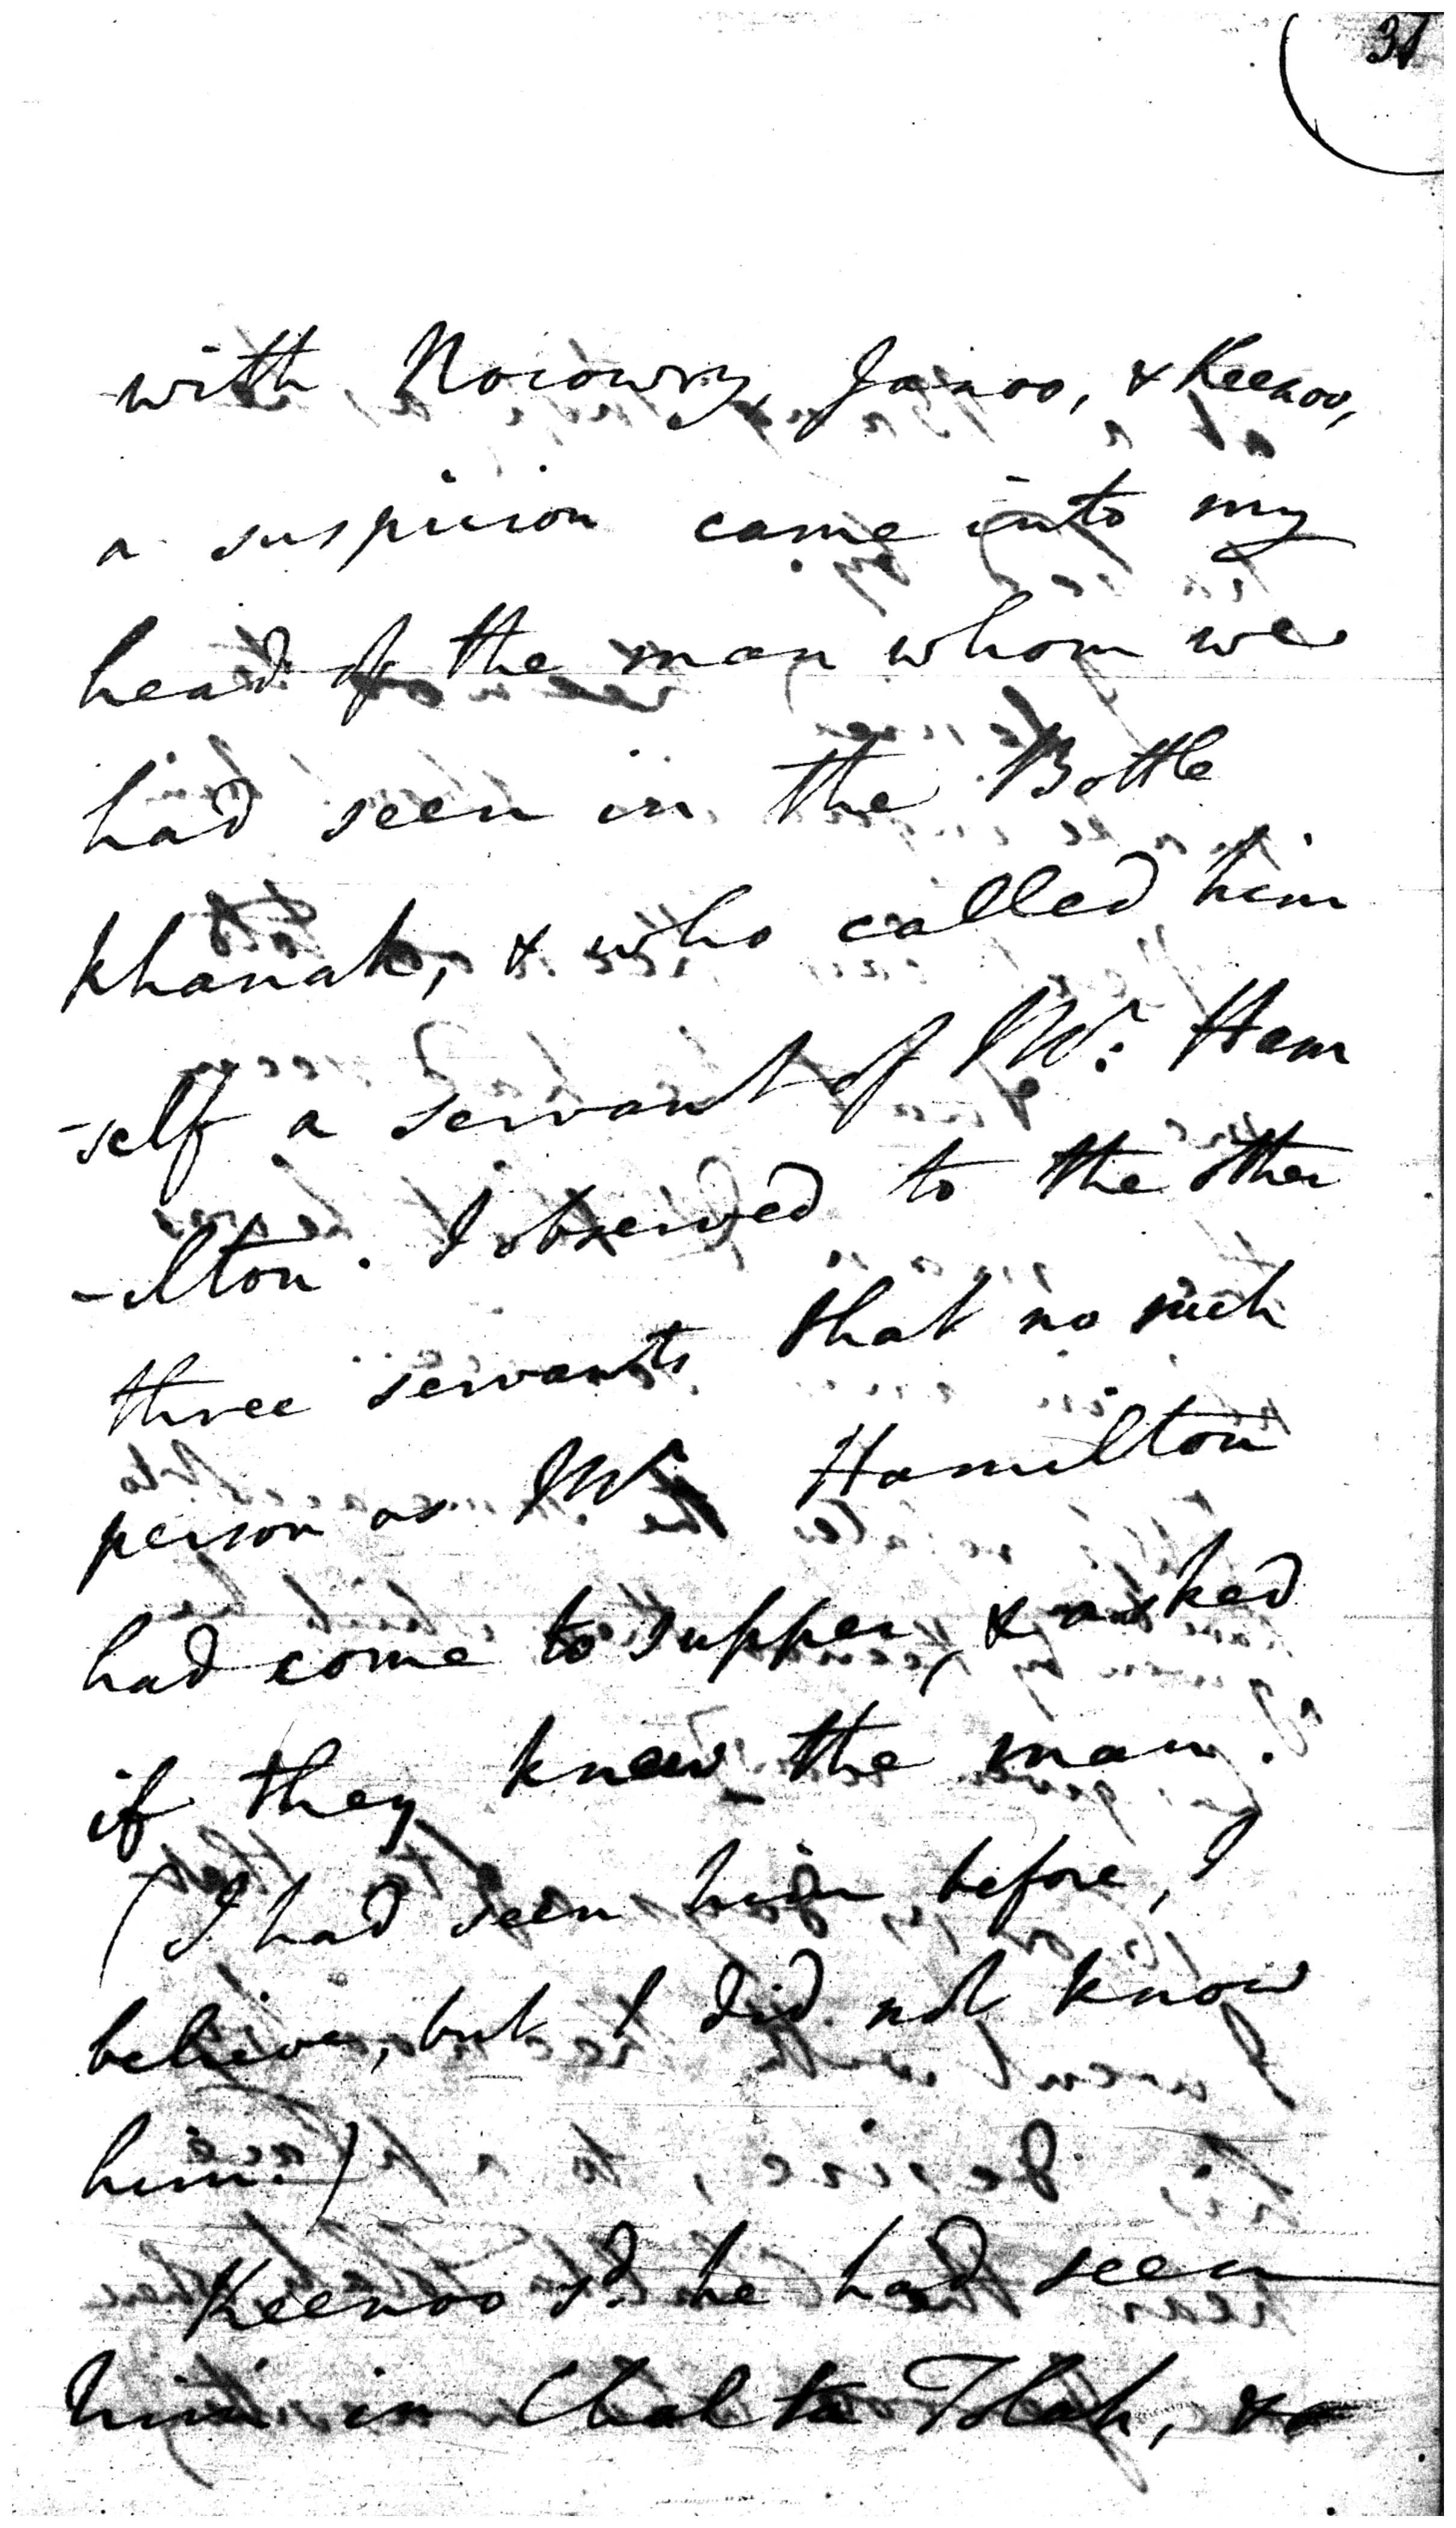 with Nocowry, Janoo, & Keenoo,
a suspicion came into my
head of the man whom we
had seen in the Bottle
Khanah, & who called him
-self a servant of Mr. Ham
-ilton. I observed to the other
three servants that no such
person as Mr Hamilton
had come to supper, & asked
if they knew the man.
(I had seen him before, I
believe, but I did not know
him.)
Keenoo sd. he had seen
him in Chalta Tolah, &